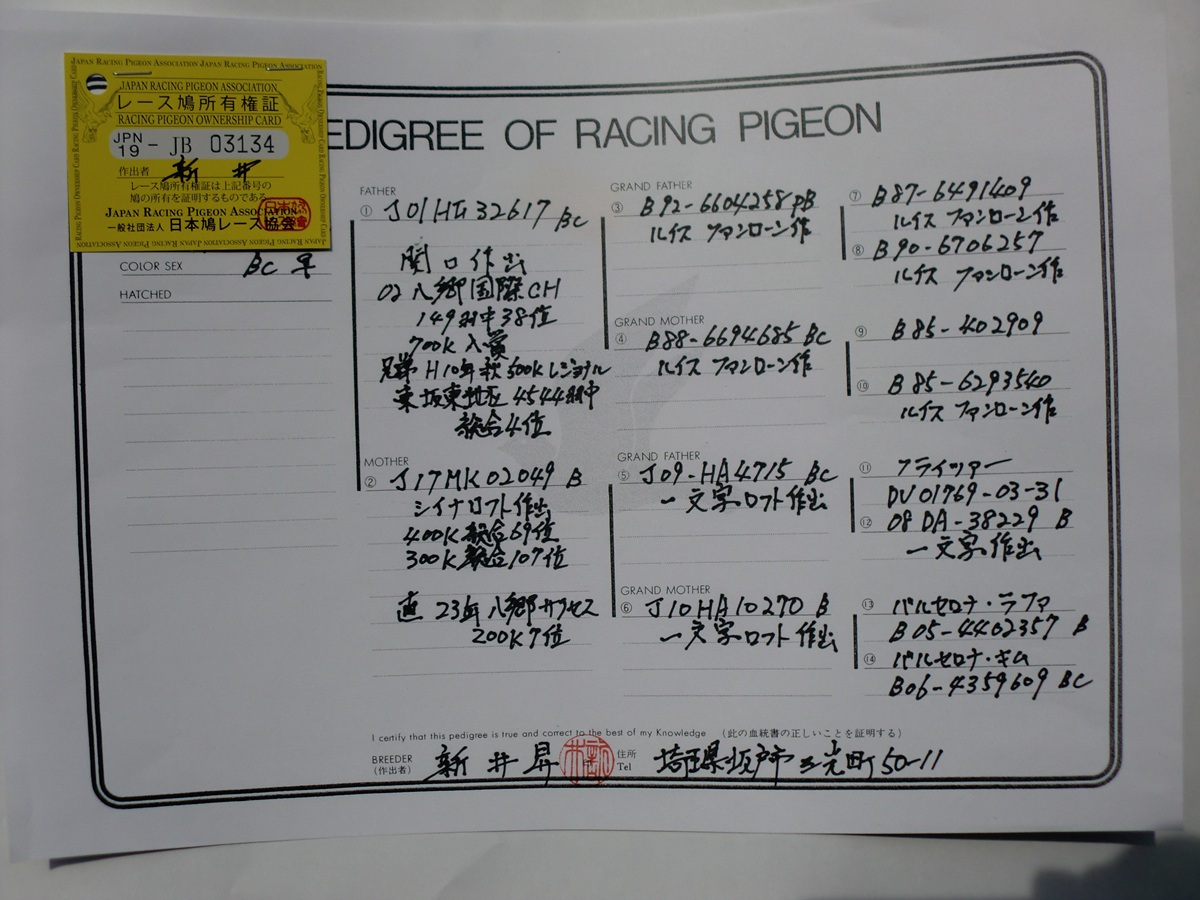 JAPAN RACING PIGEON ASSOCIATION JAPAN RACING PIGEON ASSOCIATION
JAPAN RACING PIGEON ASSOCIATION
レース鳩所有権証
RACING PIGEON OWNERSHIP CARD
JPN
19 - JB 03134
作出者 新井
レース鳩所有権証は上記番号の
鳩の所有を証明するものである
JAPAN RACING PIGEON ASSOCIATION
一般社団法人 日本鳩レース協会
EDIGREE OF RACING PIGEON
COLOR SEX BC ♀
HATCHED
FATHER
① J01HU32617 BC
関口作出
02 八郷国際CH
149羽中38位
700K入賞
兄弟 H10年秋500Kレジョナル
東坂東地区 4544羽中
総合4位
MOTHER
② J17MK02049 B
シイナロフト作出
400K総合69位
300K総合107位
直 23年八郷サクセス
200K7位
GRAND FATHER
③ B92-6604258PB
ルイス ファンローン作
GRAND MOTHER
④ B88-6694685 BC
ルイス ファンローン作
GRAND FATHER
⑤ J09-HA4715 BC
一文字ロフト作出
GRAND MOTHER
⑥ J10HA10270 B
一文字ロフト作出
⑦ B87-6491409
ルイス ファンローン作
⑧ B90-6706257
ルイス ファンローン作
⑨ B85-402909
⑩ B85-6293540
ルイス ファンローン作
⑪ フライツァー
DV01769-03-31
⑫ 08DA-38229 B
一文字作出
⑬ バルセロナ・ラファ
B05-4402357 B
⑭ バルセロナ・キム
B06-4359609 BC
I certify that this pedigree is true and correct to the best of my Knowledge (此の血統書の正しいことを証明する)
BREEDER
(作出者) 新井昇
住所
Tel 埼玉県坂戸市三光町50-11